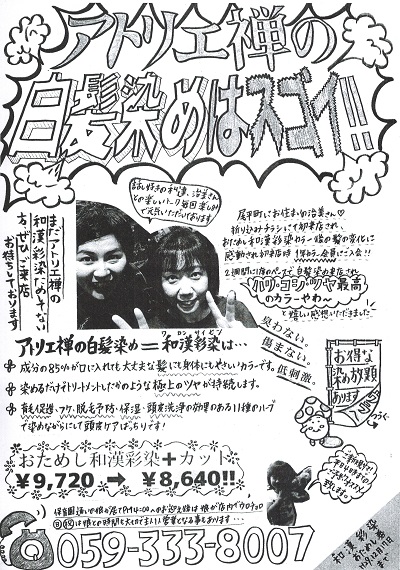 アトリエ禅の
白髪染めはスゴイ!!!
まだアトリエ禅の
和漢彩染なさってない
方、ぜひご来店
お待ちしております
話し好きの私達、治美さん
との楽しいトーク毎回楽しみで
元気いただいております
尾平町にお住まいの治美さん♡
折り込みチラシにて初来店され、
おためし和漢彩染カラー後の髪の変化に
感動され初来店時1年カラー会員にご入会!!
2週間に1度のペースで白髪染め来店され
"ハリ・コシ・ツヤ最高
のカラーやわ〜"
と嬉しい感想いただきました
臭わない。
傷まない。
低刺激。
アトリエ禅の白髪染め=和漢彩染は…
ワ カン サイ セン
成分の85%が口に入れても大丈夫な髪にも身体にもやさしいカラーです。
染めるだけでトリートメントしたかのような極上のツヤが持続します。
育毛促進・フケ、脱毛予防・保湿・頭皮洗浄の効果のある11種のハーブ
で染めながらにして頭皮ケアばっちりです!
お得な
染め放題
あります
おためし和漢彩染+カット
¥9,720 → ¥8,640!!
059-333-8007
和漢彩染
おためし券